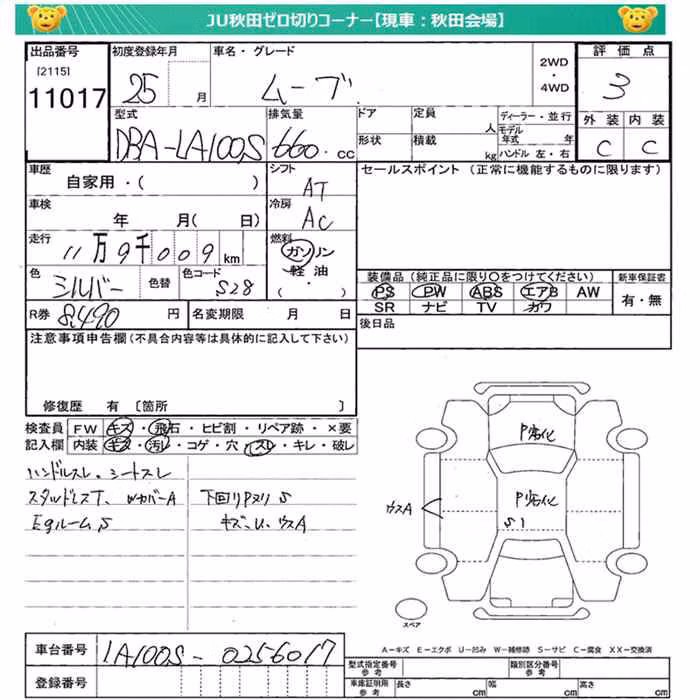 JU秋田ゼロ切りコーナー【現車：秋田会場】
出品番号
[2115]
11017
初度登録年月
25 月
車名・グレード
ムーブ
2WD
・
4WD
評価点
3
型式
DBA-LA100S
排気量
660. cc
ドア
形状
定員
人
積載
kg
ディーラー・並行
モデル
年式 年
ハンドル 左・右
外装 内装
C C
車歴
自家用・( )
シフト
AT
セールスポイント (正常に機能するものに限ります)
車検
年 月( 日)
冷房
AC
走行
11万9千009km
燃料
ガソリン
・
軽油
( ・ )
色
シルバー
色替
色コード
S28
装備品 (純正品に限り〇をつけてください)
新車保証書
PS PW ABS エアB AW
SR ナビ TV カワ
有・無
R券 8,490 円
名変期限 月 日
後日品
注意事項申告欄(不具合内容等は具体的に記入して下さい)
修復歴 有 〔箇所 〕
検査員
記入欄
FW キズ・飛石・ヒビ割・リペア跡・×要
内装 キズ・汚レ・コゲ・穴・スレ・キレ・破レ
ハンドルスレ、シートスレ
スタッドレスT、WカバーA
下回りPヌリ S
EgルームS
キズ、U、ウスA
P劣化
P劣化
S1
ウスA
スペア
A－キズ E－エクボ U－凹み W－補修跡 S－サビ C－腐食 XX－交換済
車台番号
LA100S-0256017
登録番号
型式指定番号
参考
類別区分番号
参考
車庫証明用
参考
長さ cm
幅 cm
高さ cm